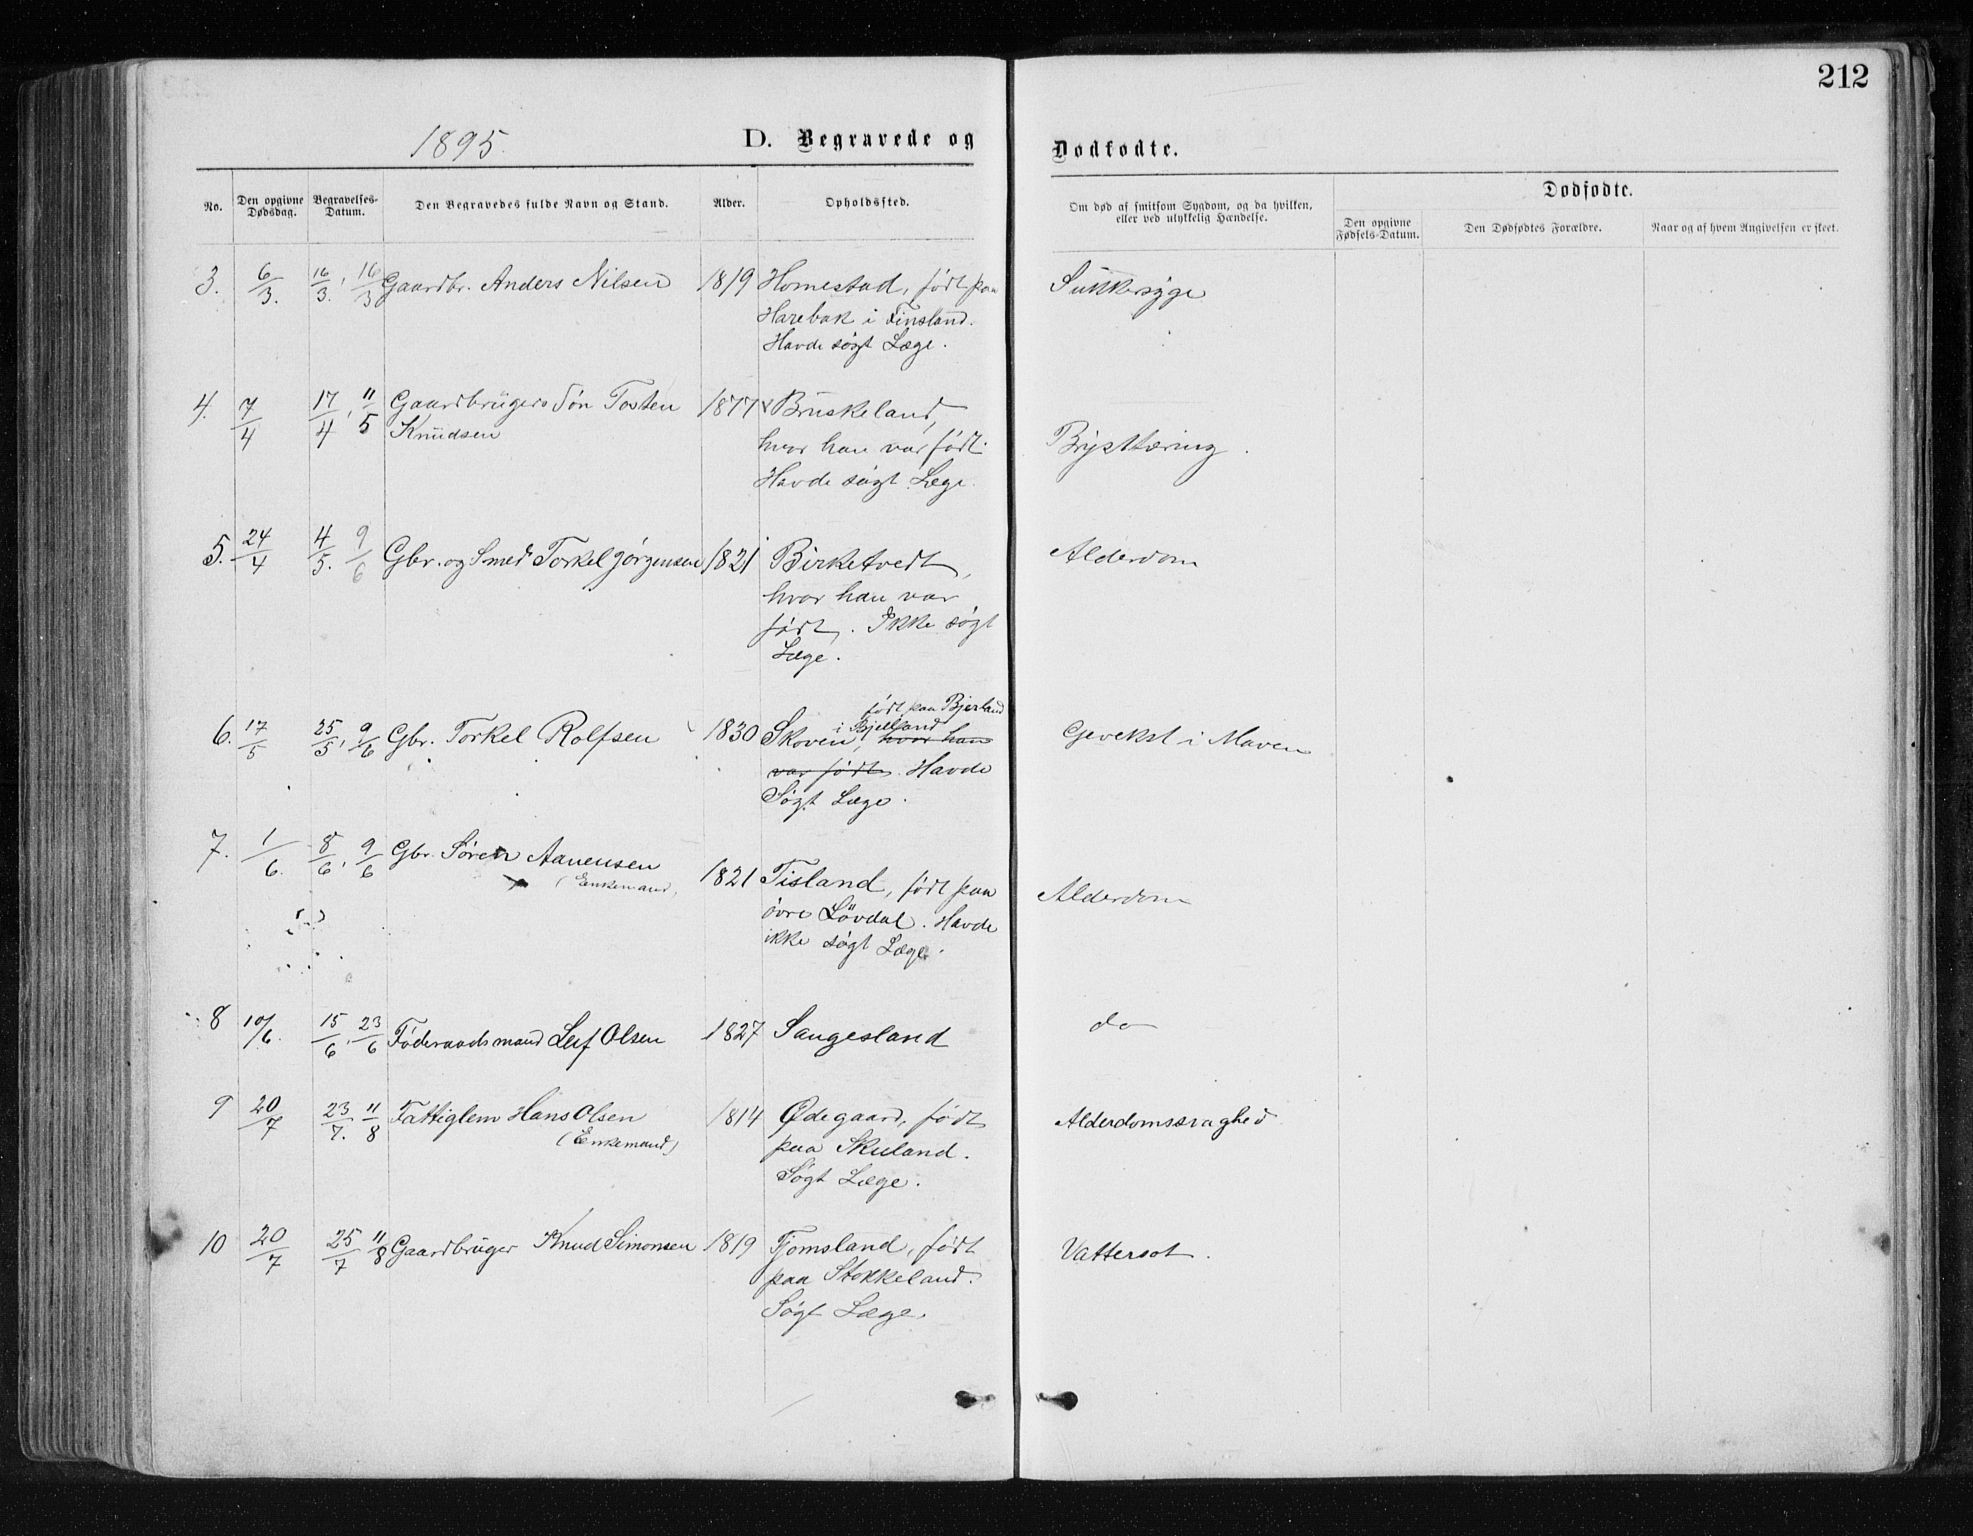 212
1895.
D. Begravede og
Dødfødte.
No.
Den opgivne Dødsdag.
Begravelses-Datum.
Den Begravedes fulde Navn og Stand.
Alder.
Opholdssted.
Om død af smitsom Sygdom, og da hvilken,
eller ved ulykkelig Hændelse.
Dødfødte.
Den opgivne Fødsels-Datum.
Den Dødfødtes Forældre.
Naar og af hvem Angivelsen er skeet.
3. 6/3. 16/3. 16/3 Gaardbr. Anders Nilsen 1819 Homestad, født paa Sukkersyge
Harebak i Finsland.
Havde søgt Læge.
4. 7/4 17/4. 11/5 Gaardbrugers Søn Tosten 1877 Bruskeland,
Knudsen hvor han var født. Brysttæring.
Havde søgt Læge.
5. 24/4 4/5. 9/6 Gbr. og Smed Torkel Jørgensen 1821 Birketvedt, Alderdom
hvor han var
født. Ikke søgt
Læge.
født paa Bjerland
i Bjelland
6. 17/5 25/5. 9/6 Gbr. Torkel Rolfsen 1830 Skoven, hvor han Gevekst i Maven
var født. Havde
Søgt Læge.
7. 1/6. 8/6. 9/6 Gbr. Søren Aanensen
(Enkemand, 1821 Tisland, født paa Alderdom
øvre Løvdal. Havde
ikke søgt Læge.
8 10/6. 15/6. 23/6 Føderaadsmand Leif Olsen 1827 Saugesland do
9 20/7 23/7. 11/8 Fattiglem Hans Olsen 1814 Ødegaard, født Alderdomssvaghed
(Enkemand) paa Skuland.
Søgt Læge.
10 20/7 25/7 11/8 Gaardbruger Knud Simonsen 1819 Fjomsland, født Vattersot.
paa Stokkeland.
Søgt Læge.